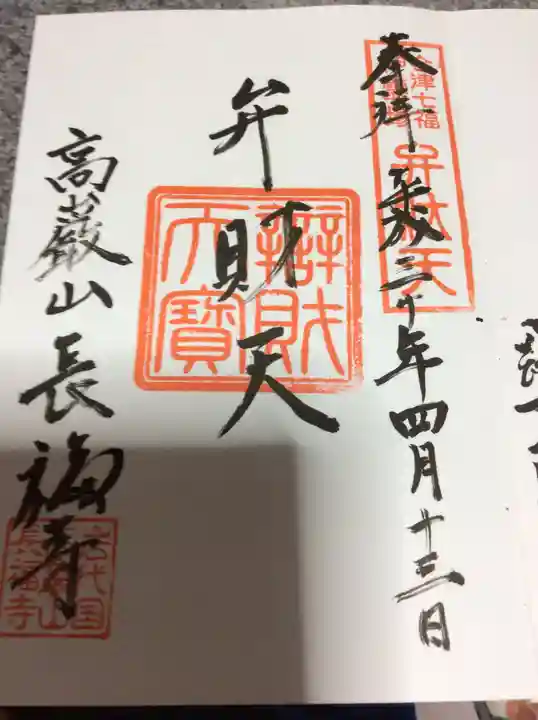 奉拝 平成三十年四月十三日
会津七福
弁財天
弁財天
辯財
天寶
高巌山長福寺
長福寺